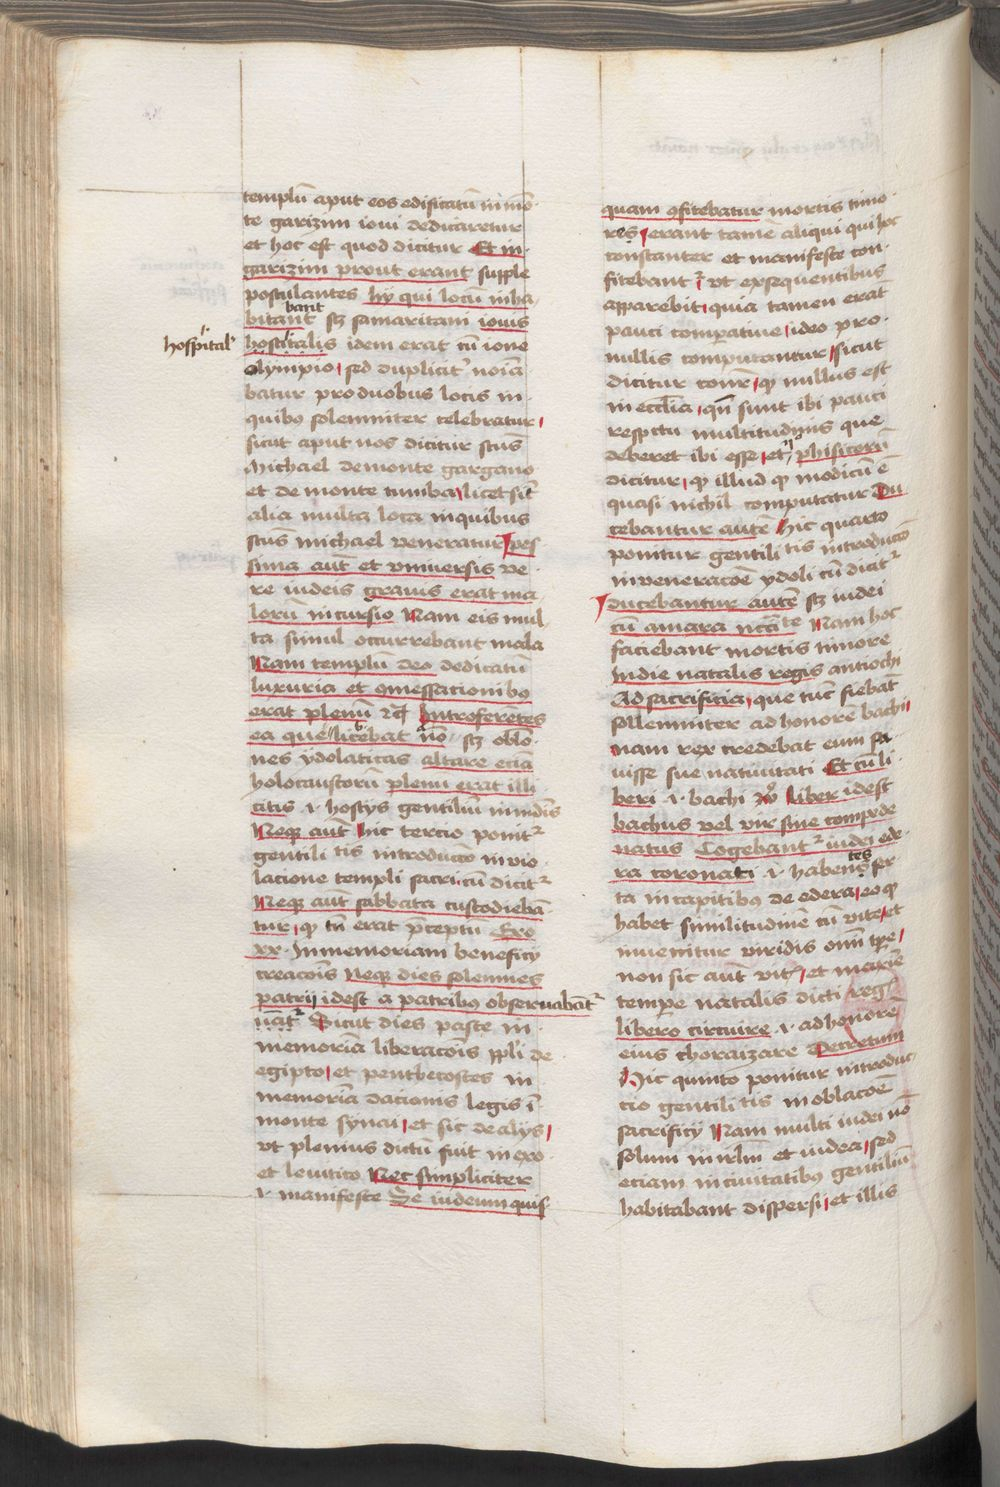 templū aput eos edificatū in mō-
te garizim ioui dedicaretur
et hoc est quod dicitur Et in
garizim prout erant supple
postulantes hy qui locū inha
bitant bant sʒ samaritani iouis
hospital'
hostitalis idem erat cū ioue
olympio sed duplicit' noīa
batur pro duobus locis in
quibꝰ solemniter celebratur
sicut aput nos dicitur scūs
Michael de monte gargano
et de monte tumba licet sīt
alia multa loca in quibus
scūs michael veneratur pes
sima aūt et vniuersis ve
re iudeis grauis erat ma
lorū incursio Nam eis mul
ta simul occurrebant mala
Nam templū deo dedicatū
luxuria et ꝯmessacionibꝰ
erat plenū rc̄ Introferentes
ea que licebat nō sʒ oblō
nes ydolaticas altare eciā
holocaustorū plenū erat illi
citis .i. hostys gentiliū inmūdis
Neqꝫ aūt hic tercio ponit᷑
gentilitatis introductō in vio
lacione templi sacri cū dicit᷑
Neqꝫ aūt sabbata custodiebā
tur qꝫ tn̄ erat p̄ceptū Exo
xx. In memoriam beneficy
creacōis Neqꝫ dies solemnes
patrij idest a patribꝰ obseruabāt᷑
uāt᷑ Sicut dies pasce in
memoriā liberacōis ppli de
egipto et penthecostes in
memoriā dacionis legis ī
monte synai et sic de alys
vt plenius dictū fuit in exo
et leuitico Nec simpliciter
.i. manifeste Se iudeum quis
quam ꝯfitebatur mortis timo
res erant tamē aliqui qui hoc
constanter et manifeste con
fitebant᷑ vt ex sequentibus
apparebit quia tamen erāt
pauci comparatiue ideo pro
nullis computantur sicut
dicitur cōīr qꝫ nullus est
in eccl̄ia qn̄ sunt ibi pauci
respectu multitudinis que
deberet ibi esse et phisicorū
dicitur qꝫ illud qꝫ modicū ē
quasi nichil computatur Du
cebantur autē Hic quarto
ponitur gentilitatis introductō
in veneracōē ydoli cū dicit᷑
ducebantur autē sʒ iudei
cū amara nccīate Nam hoc
faciebant mortis timore
In die natalis regis antiochi
Ad sacrificia que tūc fiebāt
sollemniter ad honorē bachi
nam rex credebat eum fa
uisse sue natiuitati Et cū li
beri .i. bachi Liber idest
bachus vel vir sine compede
natus Cogebant᷑ iudei ede
ra coronati .i. habentes ser
ta in capitibꝰ de edera eo qꝫ
habet similitudinē cū vite et
inuenitur viridis omī tꝑe
non sic aūt vit' et maxīe
tempe natalis dicti reg'
libero circuire .i. ad honorē
eius choraizare Decretum
Hic quinto ponitur introduc
cio gentilitatis in oblacōē
sacrificy Nam multi iudei nō
solum in ir̄lm et iudea sed
eciam in ciuitatibꝰ gentiliū
habitabant dispersi et illis